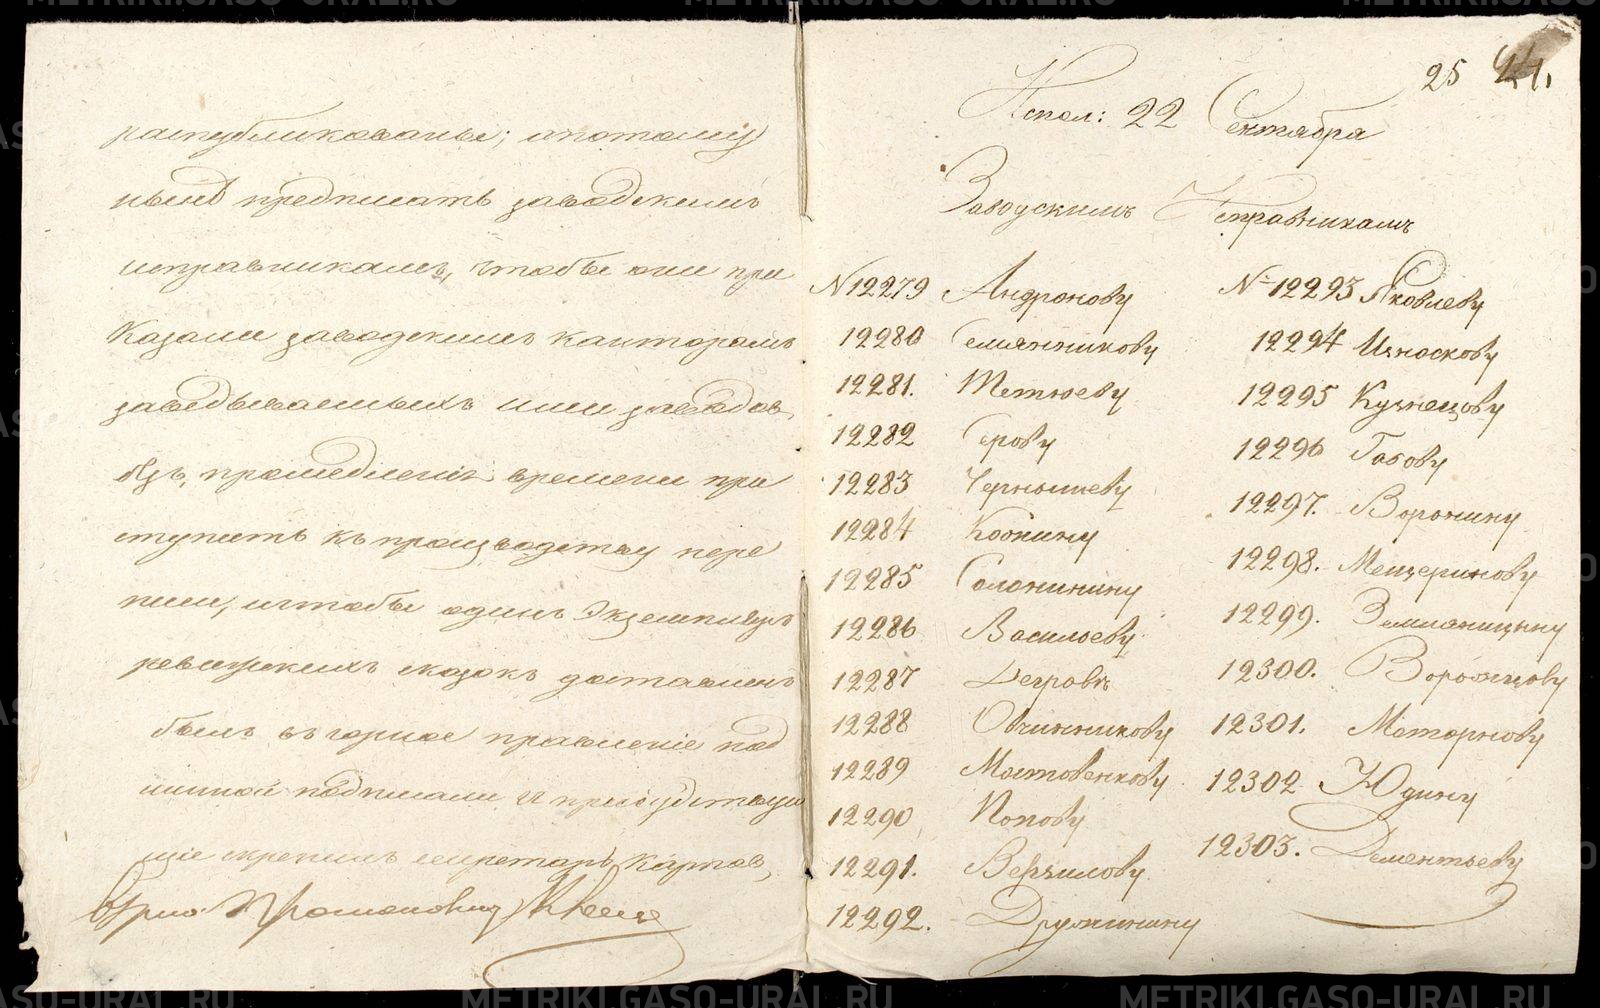 распубликованье; и потому
ныне предписать заводскимъ
исправникамъ, чтобы они при
казали заводскимъ канторамъ
заведываемыхъ ими заводов,
безъ промедленiя времени при
ступить къ производству пере
писи, и чтобы один Экземпляръ
ревижскихъ сказокъ доставленъ
былъ въ горное правленiе под
линной подписали и присудствую
щiе скрепилъ секретарь Картов,
верно
25
Испол: 22 Сентября
Заводскимъ Исправникамъ
№12279 Андронову
12280 Семянникову
12281. Тетюеву
12282 Серову
12283 Чернышеву
12284 Кокнину
12285 Солонинину
12286 Васильеву
12287
12288 Овчинникову
12289 Мостовенкову
12290 Попову
12291. Верзилову
12292. Дружинину
№ 12293 Яковлеву
12294 Износкову
12295 Кузнецову
12296
12297. Воронину
12298. Мещеринову
12299. Земляницыну
12300. Ворожцову
12301. Моторнову
12302 Юдину
12303. Дементьеву
METRIKI.GASO-URAL.RU